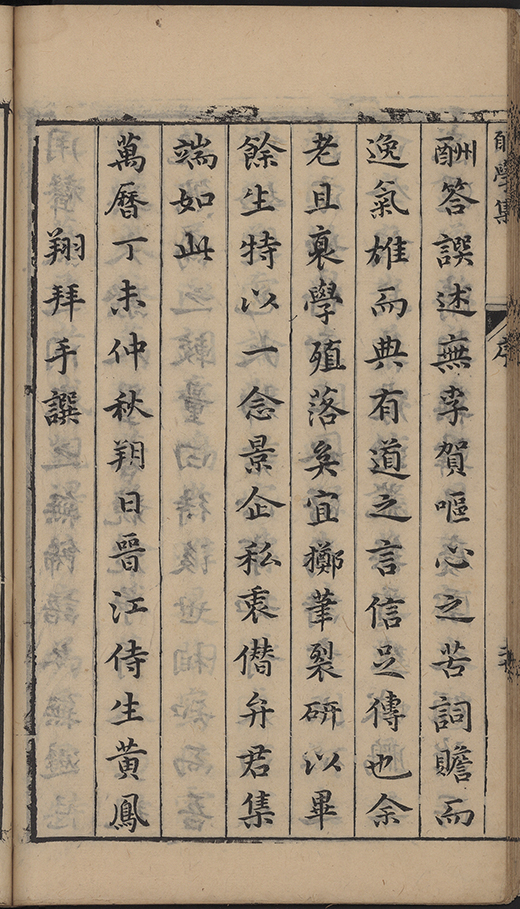 學集 序
酬答譔述無李賀嘔心之苦詞贍而
逸氣雄而典有道之言信足傳也余
老且衰學殖落矣宜擲筆裂研以畢
餘生特以一念景企私衷僭弁君集
端如此
萬曆丁未仲秋朔日晉江侍生黃鳳
翔拜手譔